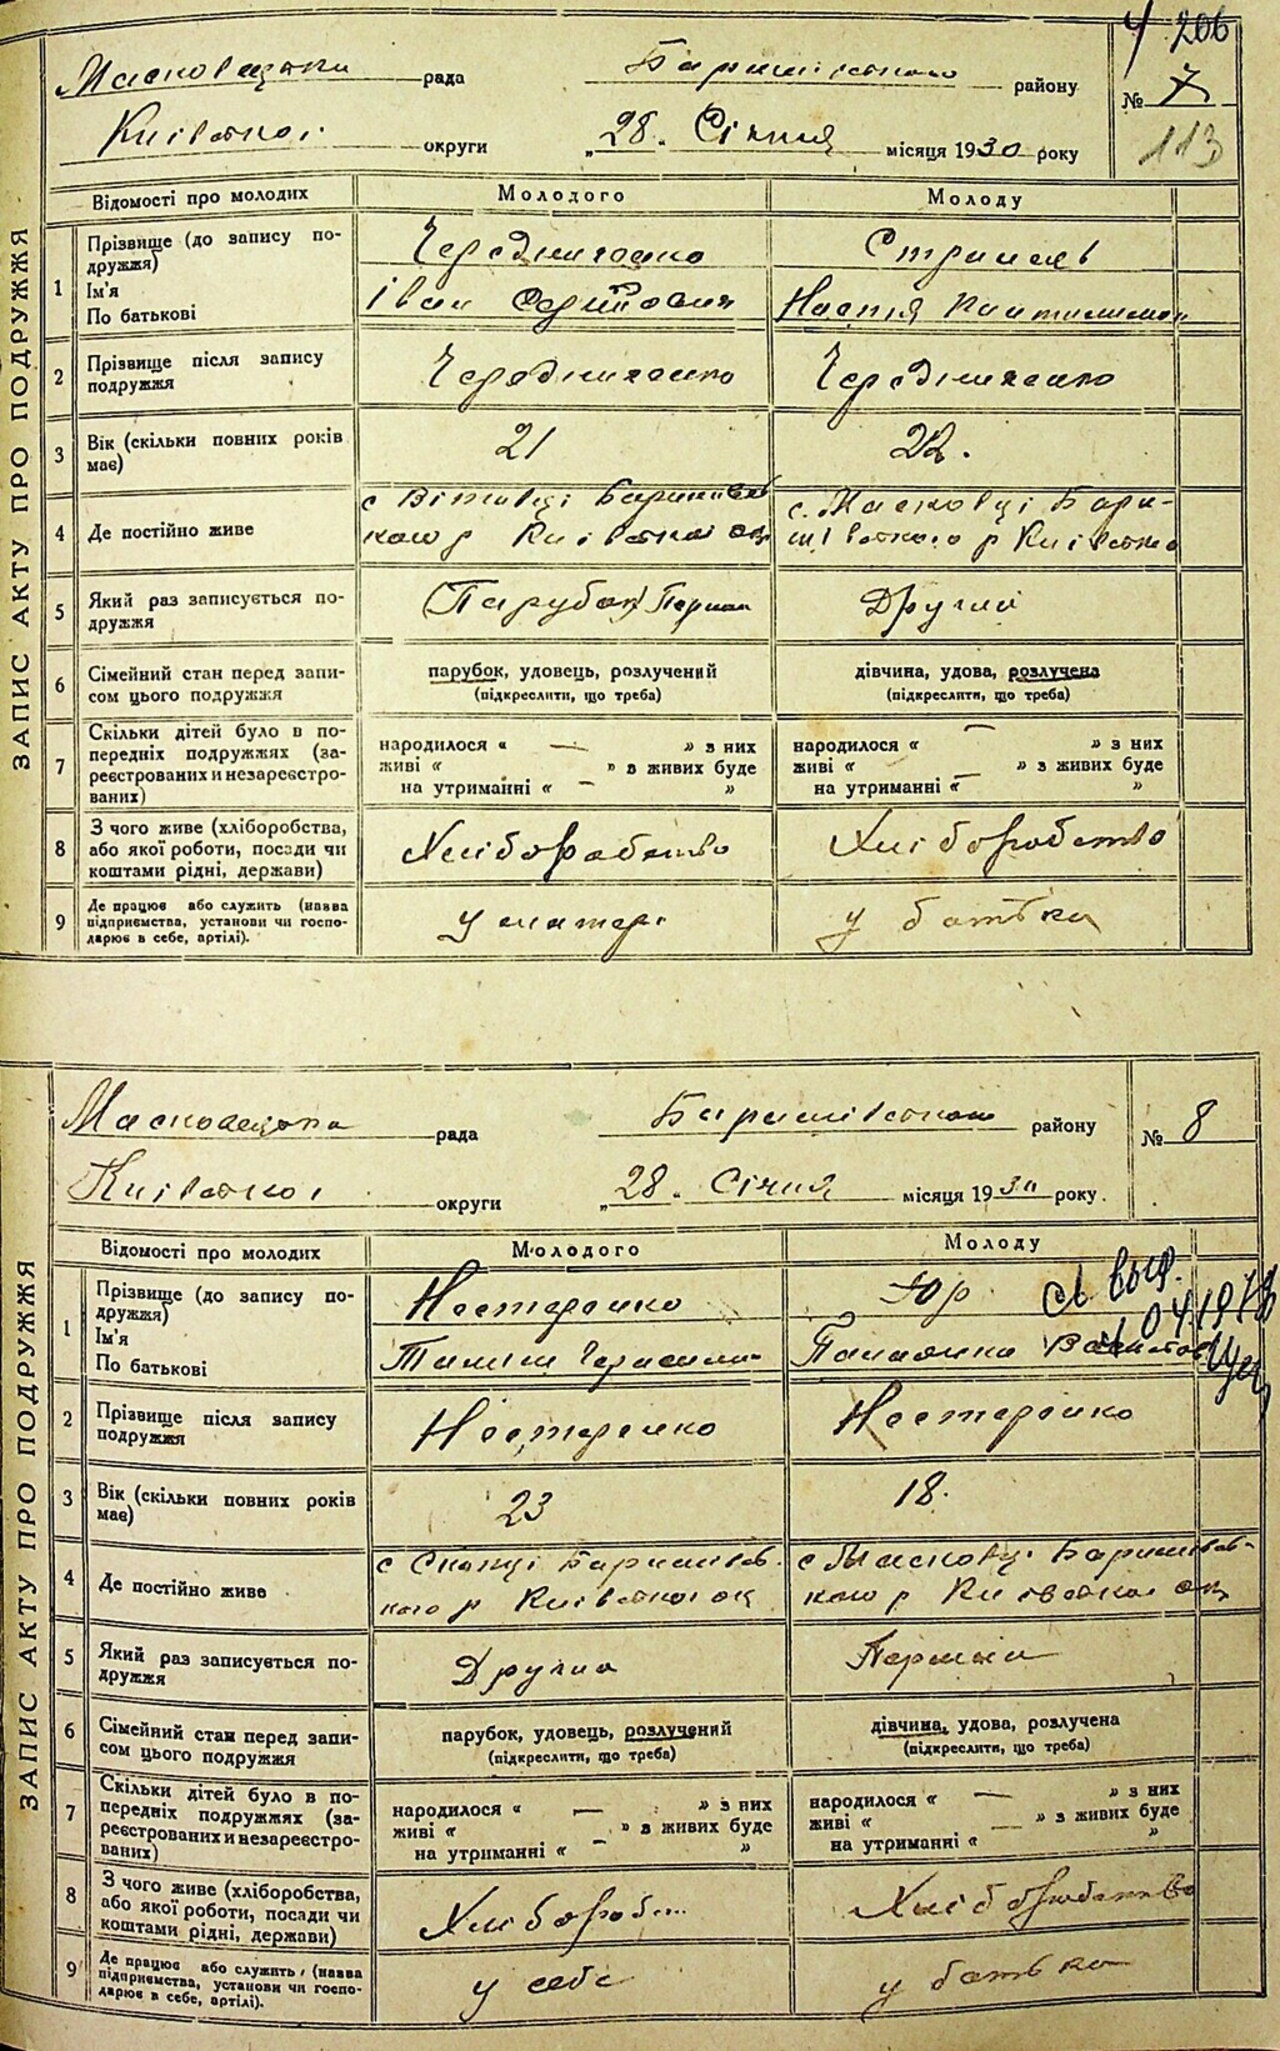 ч 206
Масковецька рада Баришівського району № 7
Київської округи „28. Січня місяця 1930 року 113
ЗАПИС АКТУ ПРО ПОДРУЖЖЯ
Відомості про молодих Молодого Молоду
1 Прізвище (до запису по-
дружжя) Чередниченко Стрилець
Ім'я
По батькові Іван Настя
2 Прізвище після запису
подружжя Чередниченко Чередниченко
3 Вік (скільки повних років
має) 21 22.
4 Де постійно живе
с Вітовці Баришівсь
кого р Київської ок
с. Масковці Бари-
шівського р Київсько
5 Який раз записується по-
дружжя (Парубок) Перший Другий
6 Сімейний стан перед запи-
сом цього подружжя
парубок, удовець, розлучений
(підкреслити, що треба)
дівчина, удова, розлучена
(підкреслити, що треба)
7 Скільки дітей було в по-
передніх подружжях (за-
реєстрованих и незареєстро-
ваних)
народилося « — » з них
живі « » з живих буде
на утриманні « — »
народилося « — » з них
живі « » з живих буде
на утриманні « — »
8 З чого живе (хліборобства,
або якої роботи, посади чи
коштами рідні, держави) Хліборобство Хліборобство
9 Де працює або служить (назва
підприємства, установи чи госпо-
дарює в себе, артілі). у матері у батька
Масковецька рада Баришівського району № 8
Київської округи „28. Січня місяця 1930 року.
ЗАПИС АКТУ ПРО ПОДРУЖЖЯ
Відомості про молодих Молодого Молоду
1 Прізвище (до запису по-
дружжя) Нестеренко Юр
Ім'я
По батькові Палажка
2 Прізвище після запису
подружжя Нестеренко Нестеренко
3 Вік (скільки повних років
має) 23 18.
4 Де постійно живе
с Скопці Баришівсь-
кого р Київської ок
с Масковці Баришівсь-
кого р Київської ок
5 Який раз записується по-
дружжя Другий Перший
6 Сімейний стан перед запи-
сом цього подружжя
парубок, удовець, розлучений
(підкреслити, що треба)
дівчина, удова, розлучена
(підкреслити, що треба)
7 Скільки дітей було в по-
передніх подружжях (за-
реєстрованих и незареєстро-
ваних)
народилося « — » з них
живі « » з живих буде
на утриманні « — »
народилося « — » з них
живі « — » з живих буде
на утриманні « »
8 З чого живе (хліборобства,
або якої роботи, посади чи
коштами рідні, держави) Хліборобство
9 Де працює або служить, (назва
підприємства, установи чи госпо-
дарює в себе, артілі). у себе у батька